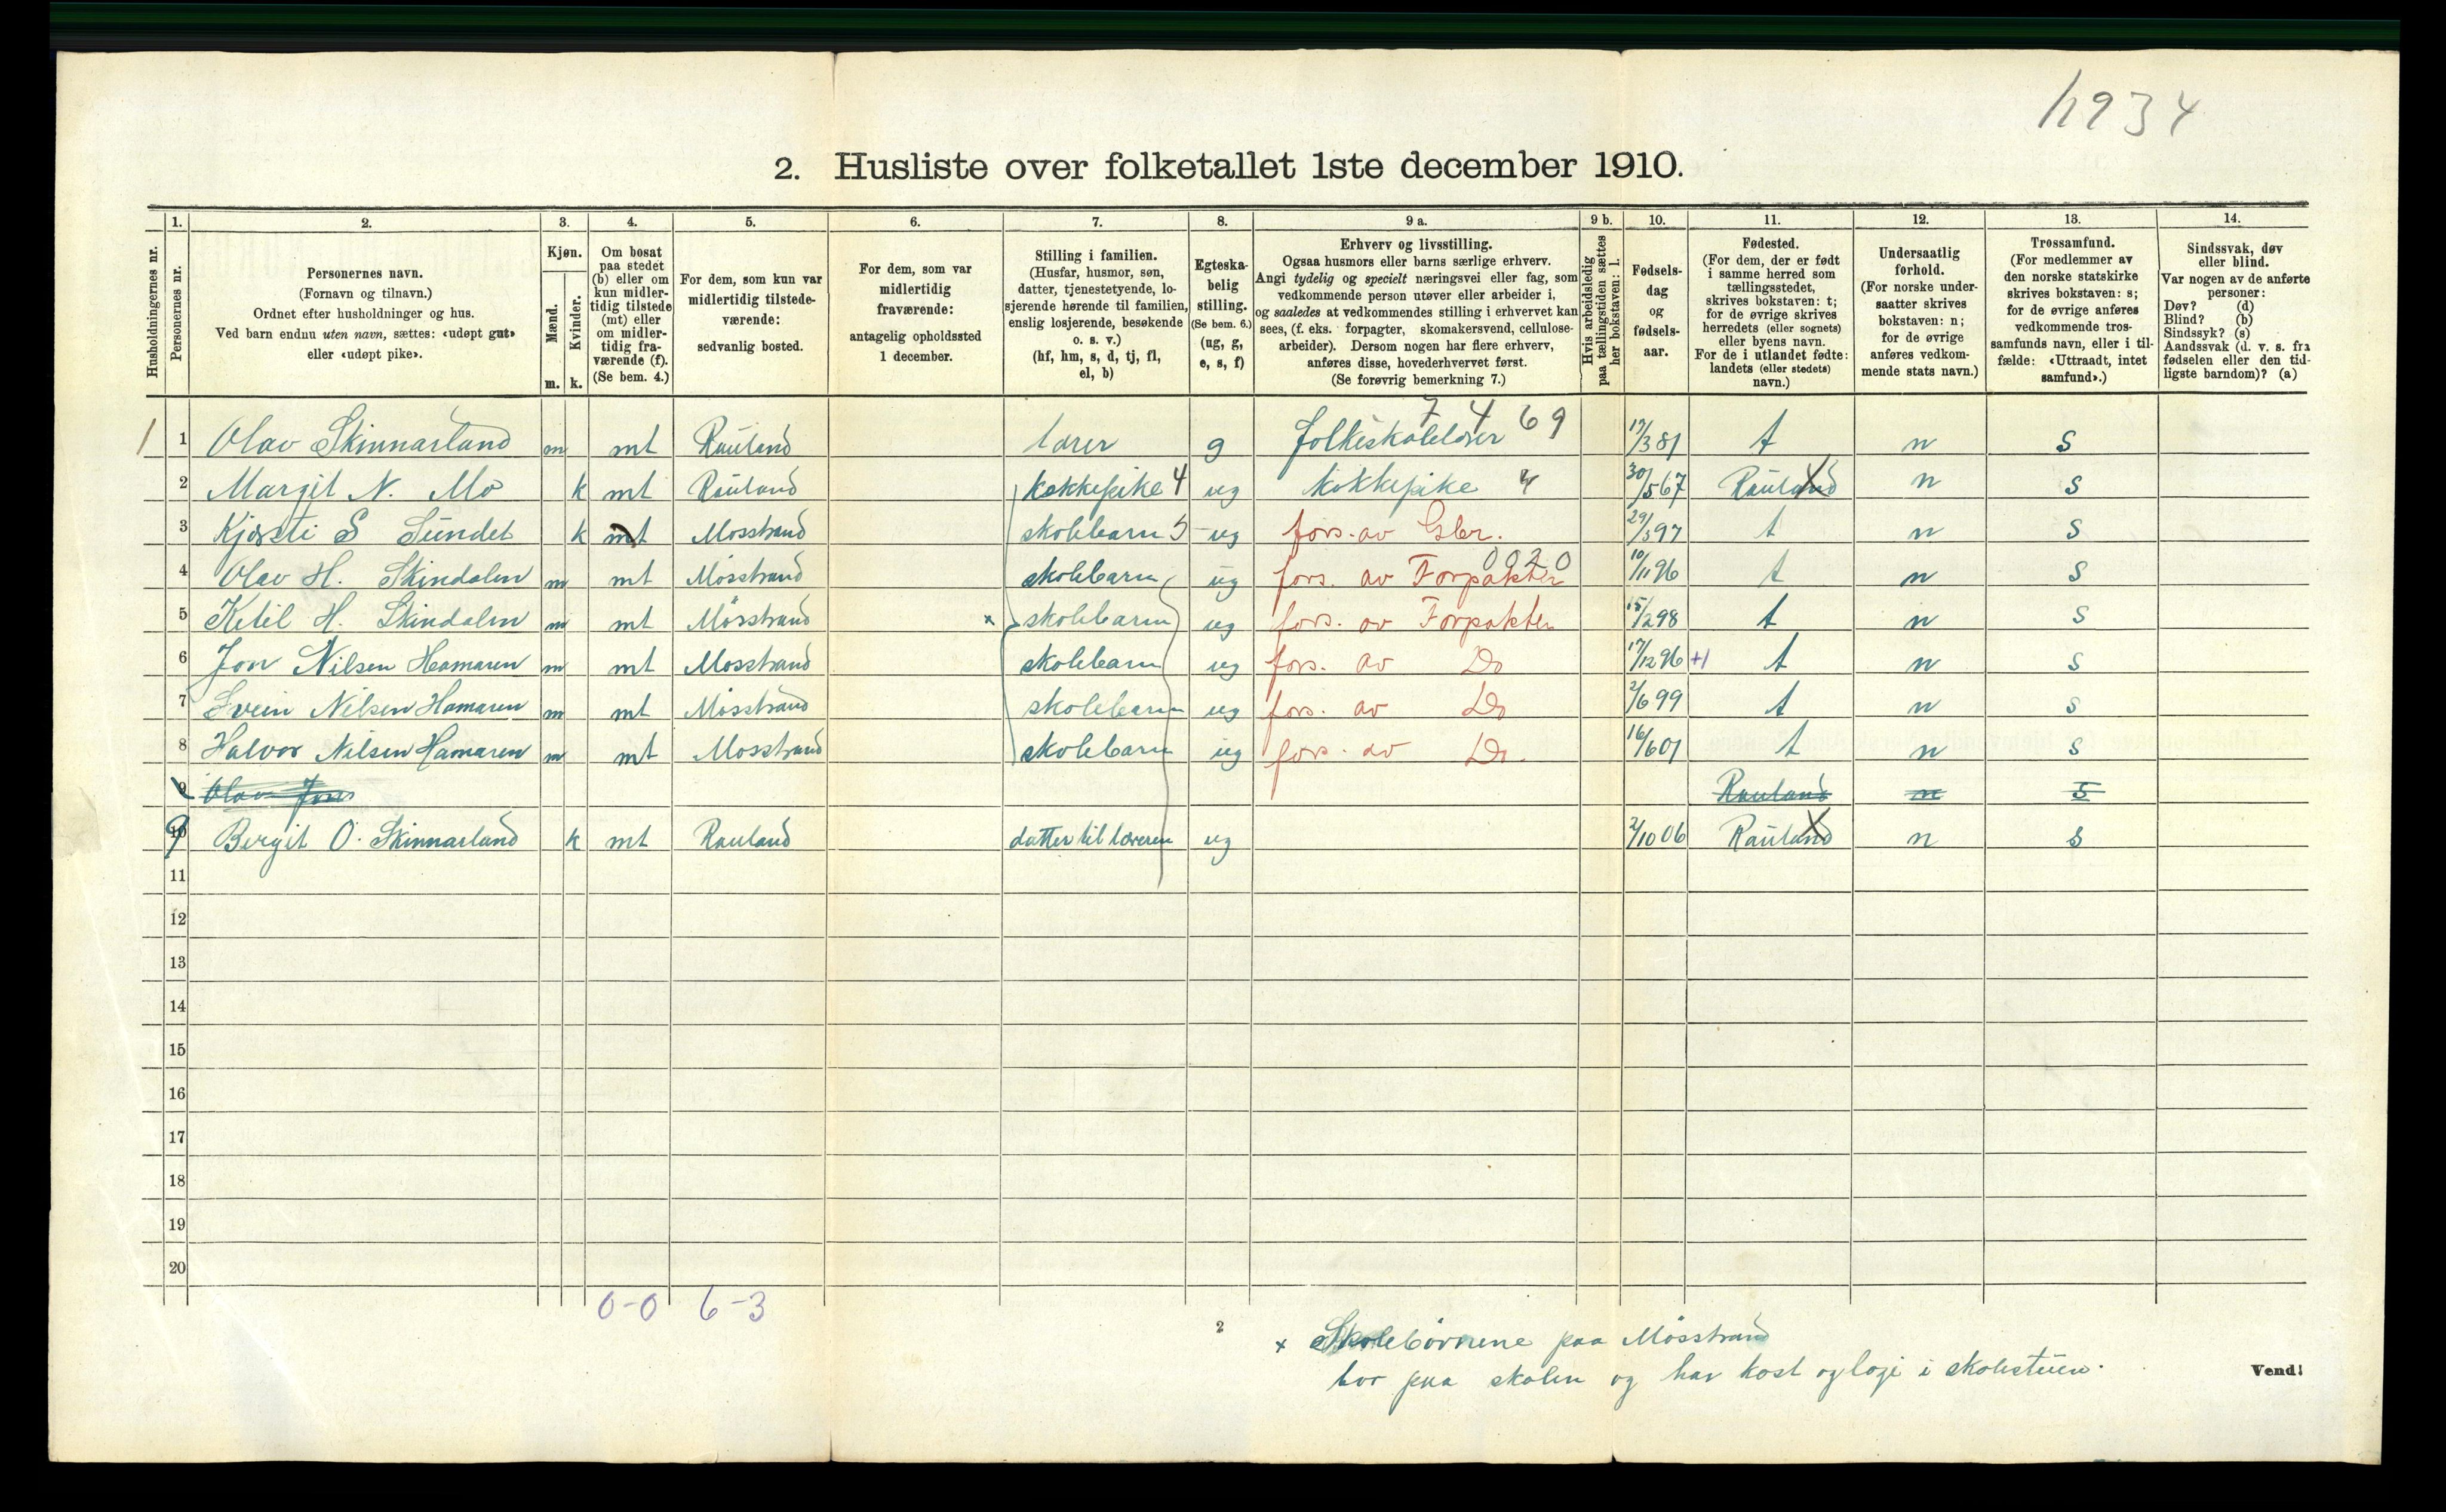 1934
2. Husliste over folketallet 1ste december 1910.
1. 2. 3. 4. 5. 6. 7. 8. 9 a. 9 b. 10. 11. 12. 13. 14.
Husholdningernes nr.
Personernes nr.
Personernes navn.
(Fornavn og tilnavn.)
Ordnet efter husholdninger og hus.
Ved barn endnu uten navn, sættes: «udøpt gut»
eller «udøpt pike».
Kjøn.
Mænd. Kvinder.
m. k.
Om bosat
paa stedet
(b) eller om
kun midler-
tidig tilstede
(mt) eller
om midler-
tidig fra-
værende (f).
(Se bem. 4.)
For dem, som kun var
midlertidig tilstede-
værende:
sedvanlig bosted.
For dem, som var
midlertidig
fraværende:
antagelig opholdssted
1 december.
Stilling i familien.
(Husfar, husmor, søn,
datter, tjenestetyende, lo-
sjerende hørende til familien,
enslig losjerende, besøkende
o. s. v.)
(hf, hm, s, d, tj, fl,
el, b)
Egteska-
belig
stilling.
(Se bem. 6.)
(ug, g,
e, s, f)
Erhverv og livsstilling.
Ogsaa husmors eller barns særlige erhverv.
Angi tydelig og specielt næringsvei eller fag, som
vedkommende person utøver eller arbeider i,
og saaledes at vedkommendes stilling i erhvervet kan
sees, (f. eks. forpagter, skomakersvend, cellulose-
arbeider). Dersom nogen har flere erhverv,
anføres disse, hovederhvervet først.
(Se forøvrig bemerkning 7.)
Hvis arbeidsledig
paa tællingstiden sættes
her bokstaven: l.
Fødsels-
dag
og
fødsels-
aar.
Fødested.
(For dem, der er født
i samme herred som
tællingsstedet,
skrives bokstaven: t;
for de øvrige skrives
herredets (eller sognets)
eller byens navn.
For de i utlandet fødte:
landets (eller stedets)
navn.)
Undersaatlig
forhold.
(For norske under-
saatter skrives
bokstaven: n;
for de øvrige
anføres vedkom-
mende stats navn.)
Trossamfund.
(For medlemmer av
den norske statskirke
skrives bokstaven: s;
for de øvrige anføres
vedkommende tros-
samfunds navn, eller i til-
fælde: «Uttraadt, intet
samfund».)
Sindssvak, døv
eller blind.
Var nogen av de anførte
personer:
Døv? (d)
Blind? (b)
Sindssyk? (s)
Aandssvak (d. v. s. fra
fødselen eller den tid-
ligste barndom)? (a)
7 4 69
1 1 Olav Skinnarland m mt Rauland lærer g folkeskolelærer 17/3 81 t n s
2 Margit N. Mo k mt Rauland kokkepike 4 ug kokkepike 4 30/5 67 Rauland n s
3 Kjersti S Sundet k mt Mosstrand skolebarn 5 ug fors. av Gbr. 29/3 97 t n s
0020
4 Olav H. Skindalen m mt Mösstrand skolebarn ug fors. av Forpakter 10/11 96 t n s
5 Ketil H. Skindalen m mt Mösstrand x skolebarn ug fors. av Forpakter 15/2 98 t n s
6 Jon Nilsen Hamaren m mt Mosstrand skolebarn ug fors. av Do 17/12 96 +1 t n s
7 Svein Nilsen Hamaren m mt Mösstrand skolebarn ug fors. av Do 2/6 99 t n s
8 Halvor Nilsen Hamaren m mt Mosstrand skolebarn ug fors. av Do. 16/6 01 t n s
9 Olav Jons Rauland n s
10 9 Bergit O. Skinnarland k mt Rauland datter til læreren ug 2/10 06 Rauland n s
11
12
13
14
15
16
17
18
19
20
0-0 6-3
2
x Skolebörnene paa Mösstrand
bor paa skolen og har kost og logi i skolestuen.
Vend!